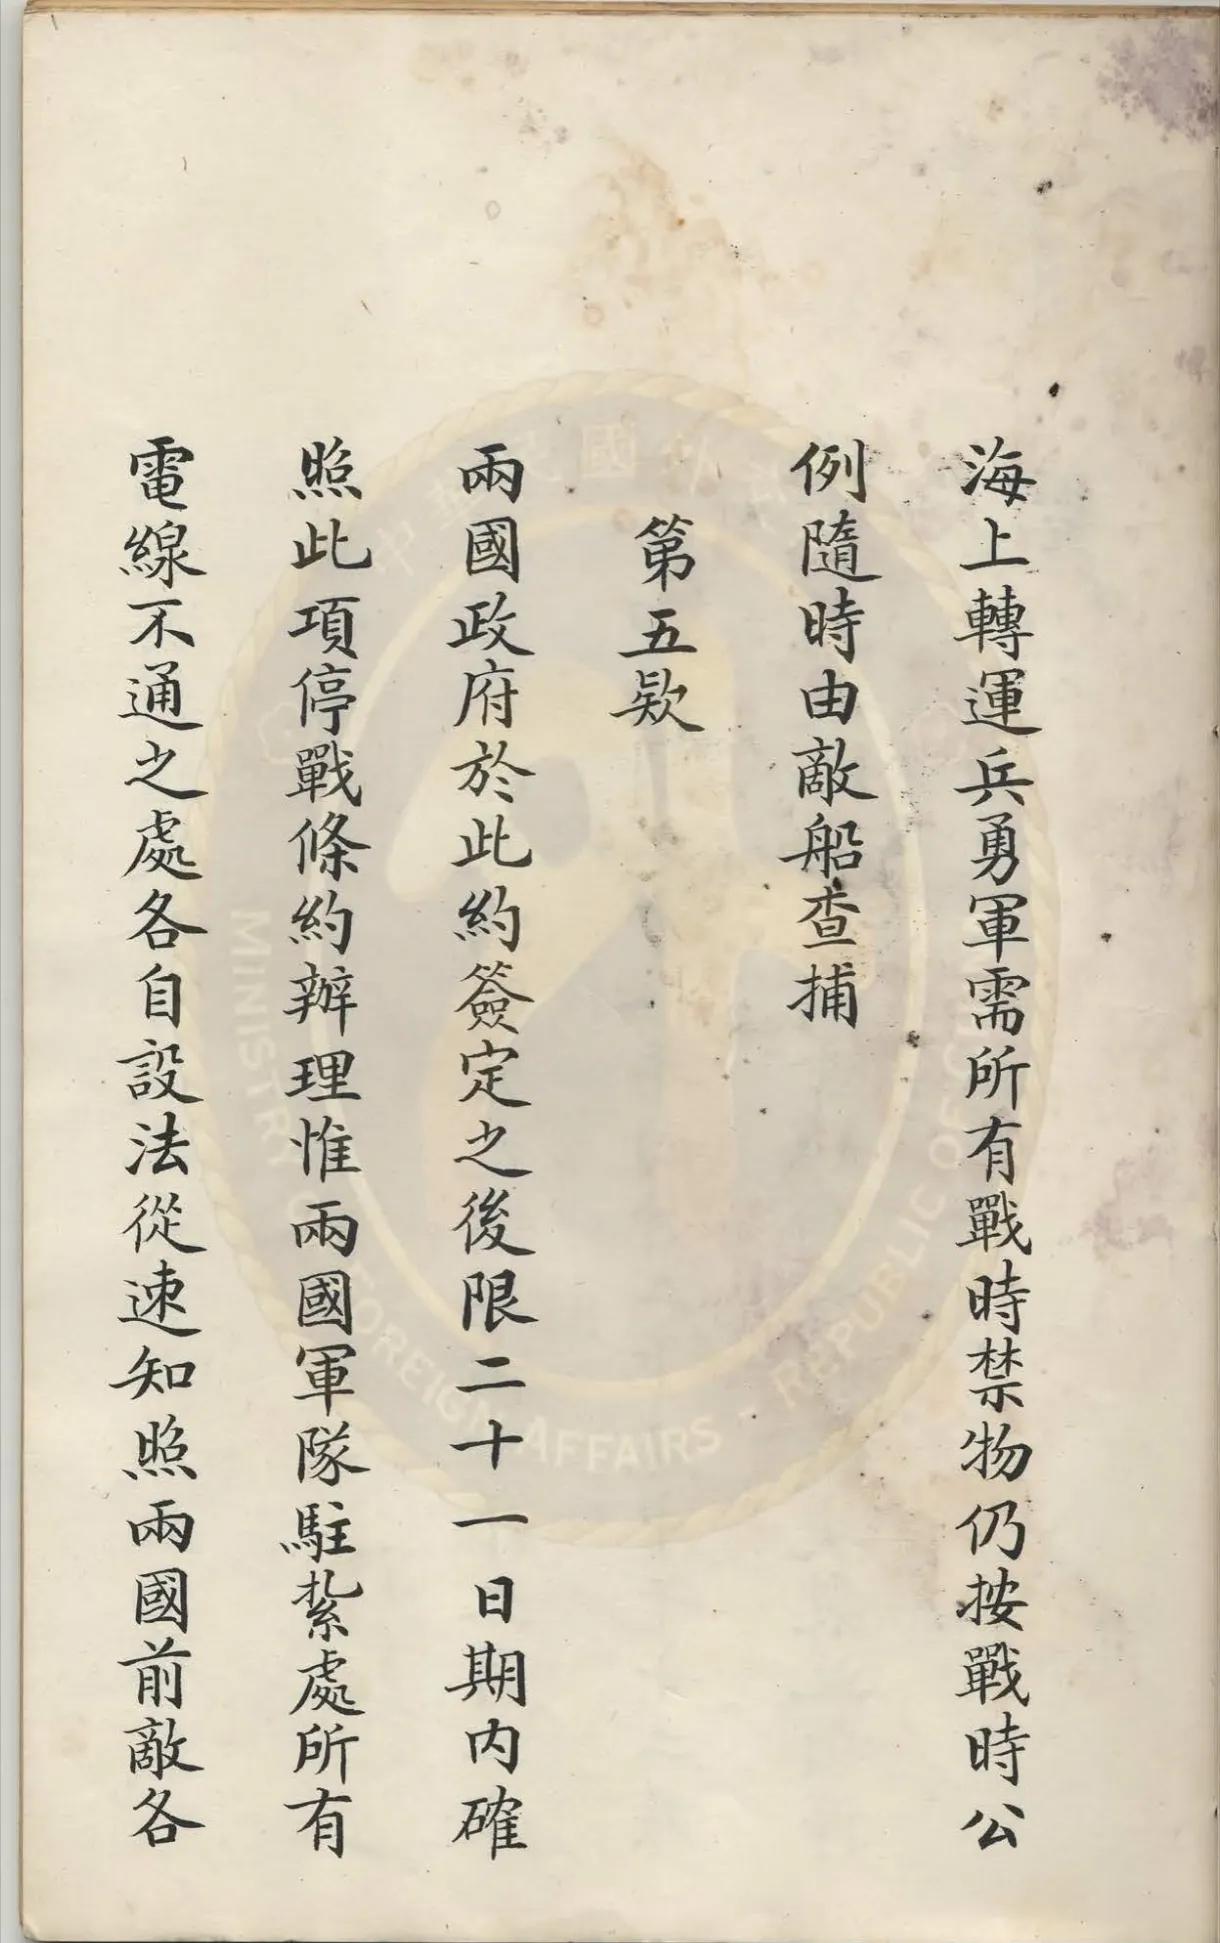 海上轉運兵勇軍需所有戰時禁物仍按戰時公
例隨時由敵船查捕
第五款
兩國政府於此約簽定之後限二十一日期內確
照此項停戰條約辦理惟兩國軍隊駐紮處所有
電線不通之處各自設法從速知照兩國前敵各
MINISTRY OF FOREIGN AFFAIRS - REPUBLIC OF